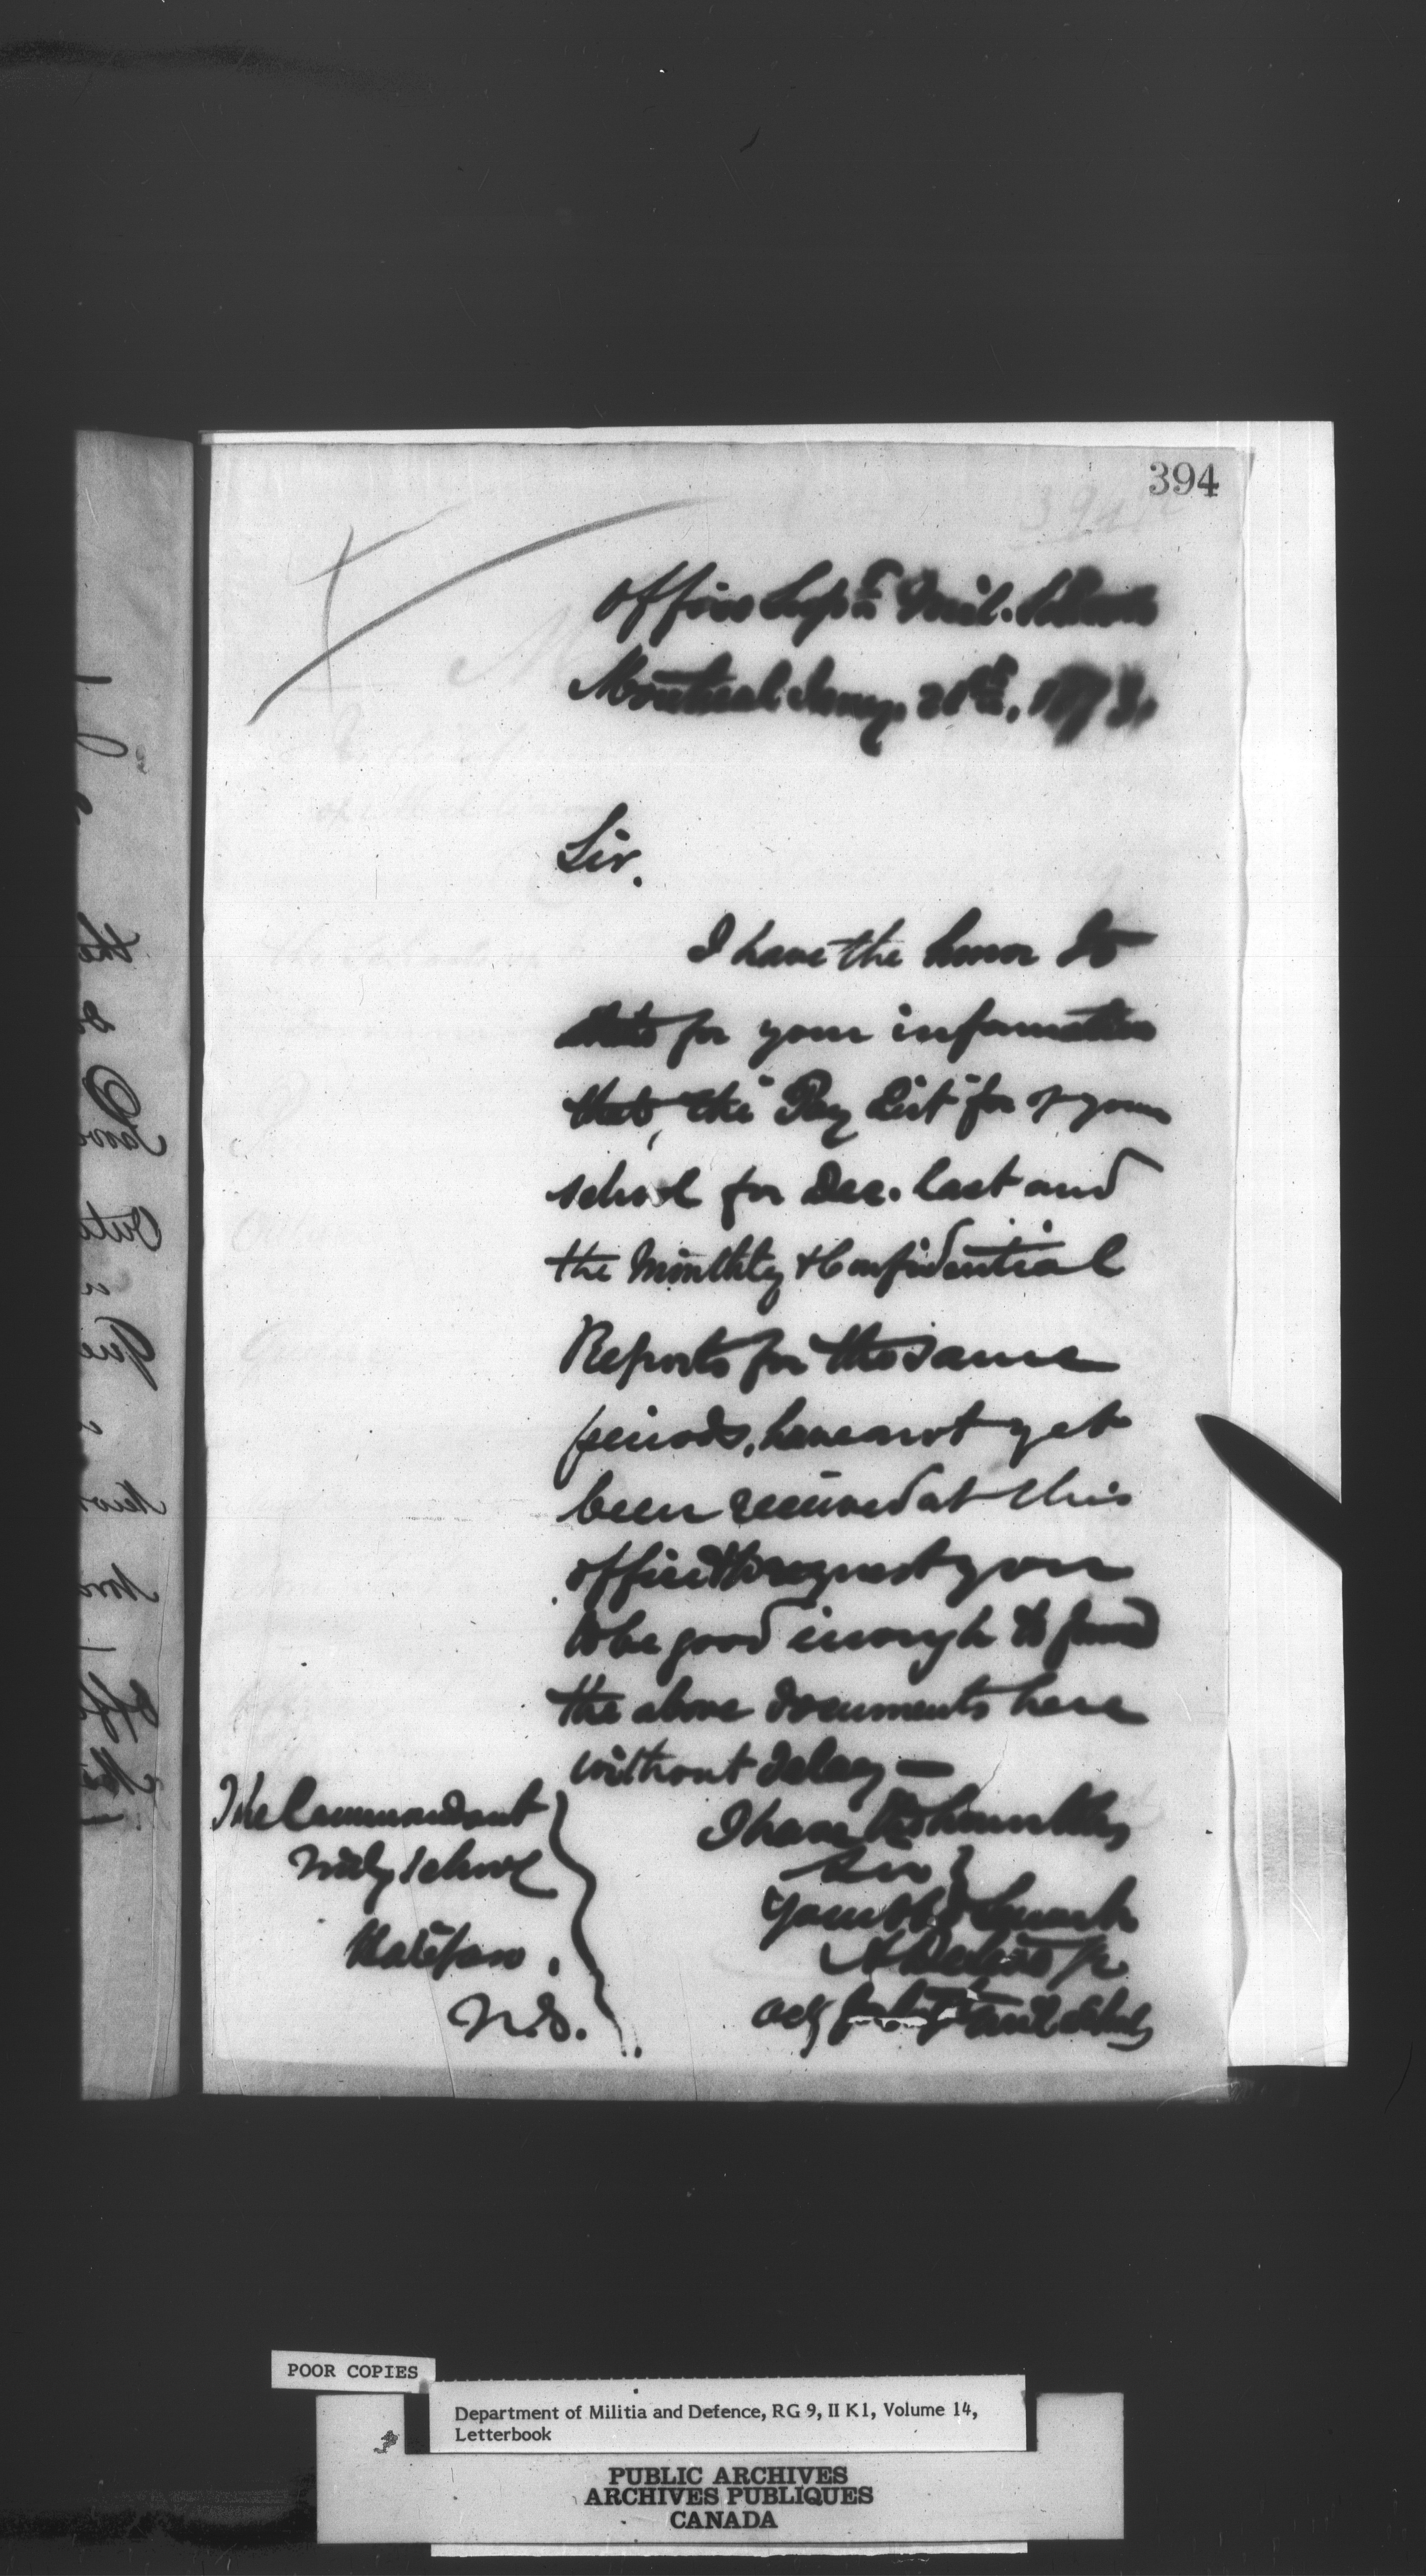 394
Office Sup.r Mil. Schools
Montreal Jany. 20th, 1873.
Sir.
I have the honor to
state for your information
that, the Pay List for of your
school for Dec. last and
the Monthly & Confidential
Reports for the same
periods, have not yet
been received at this
office & to request you
to be good enough to
the above documents here
without delay —
I have the honor to be,
Sir
Your Obt. Servant
Actg for Mil Schools
The Commandant
Mily School
Halifax,
N.S.
POOR COPIES
Department of Militia and Defence, RG 9, II K1, Volume 14,
Letterbook
PUBLIC ARCHIVES
ARCHIVES PUBLIQUES
CANADA